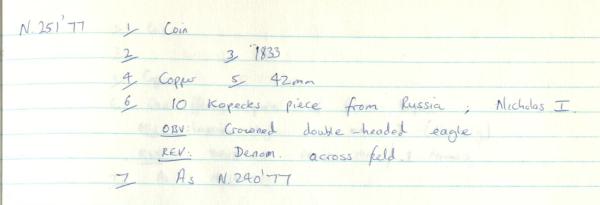 N.251'77 1/ Coin
2/ 3/ 1833
4/ Copper 5/ 42mm
6/ 10 Kopecks piece from Russia ; Nicholas I.
OBV: Crowned double-headed eagle
REV: Denom. across field.
7/ As N.240'77